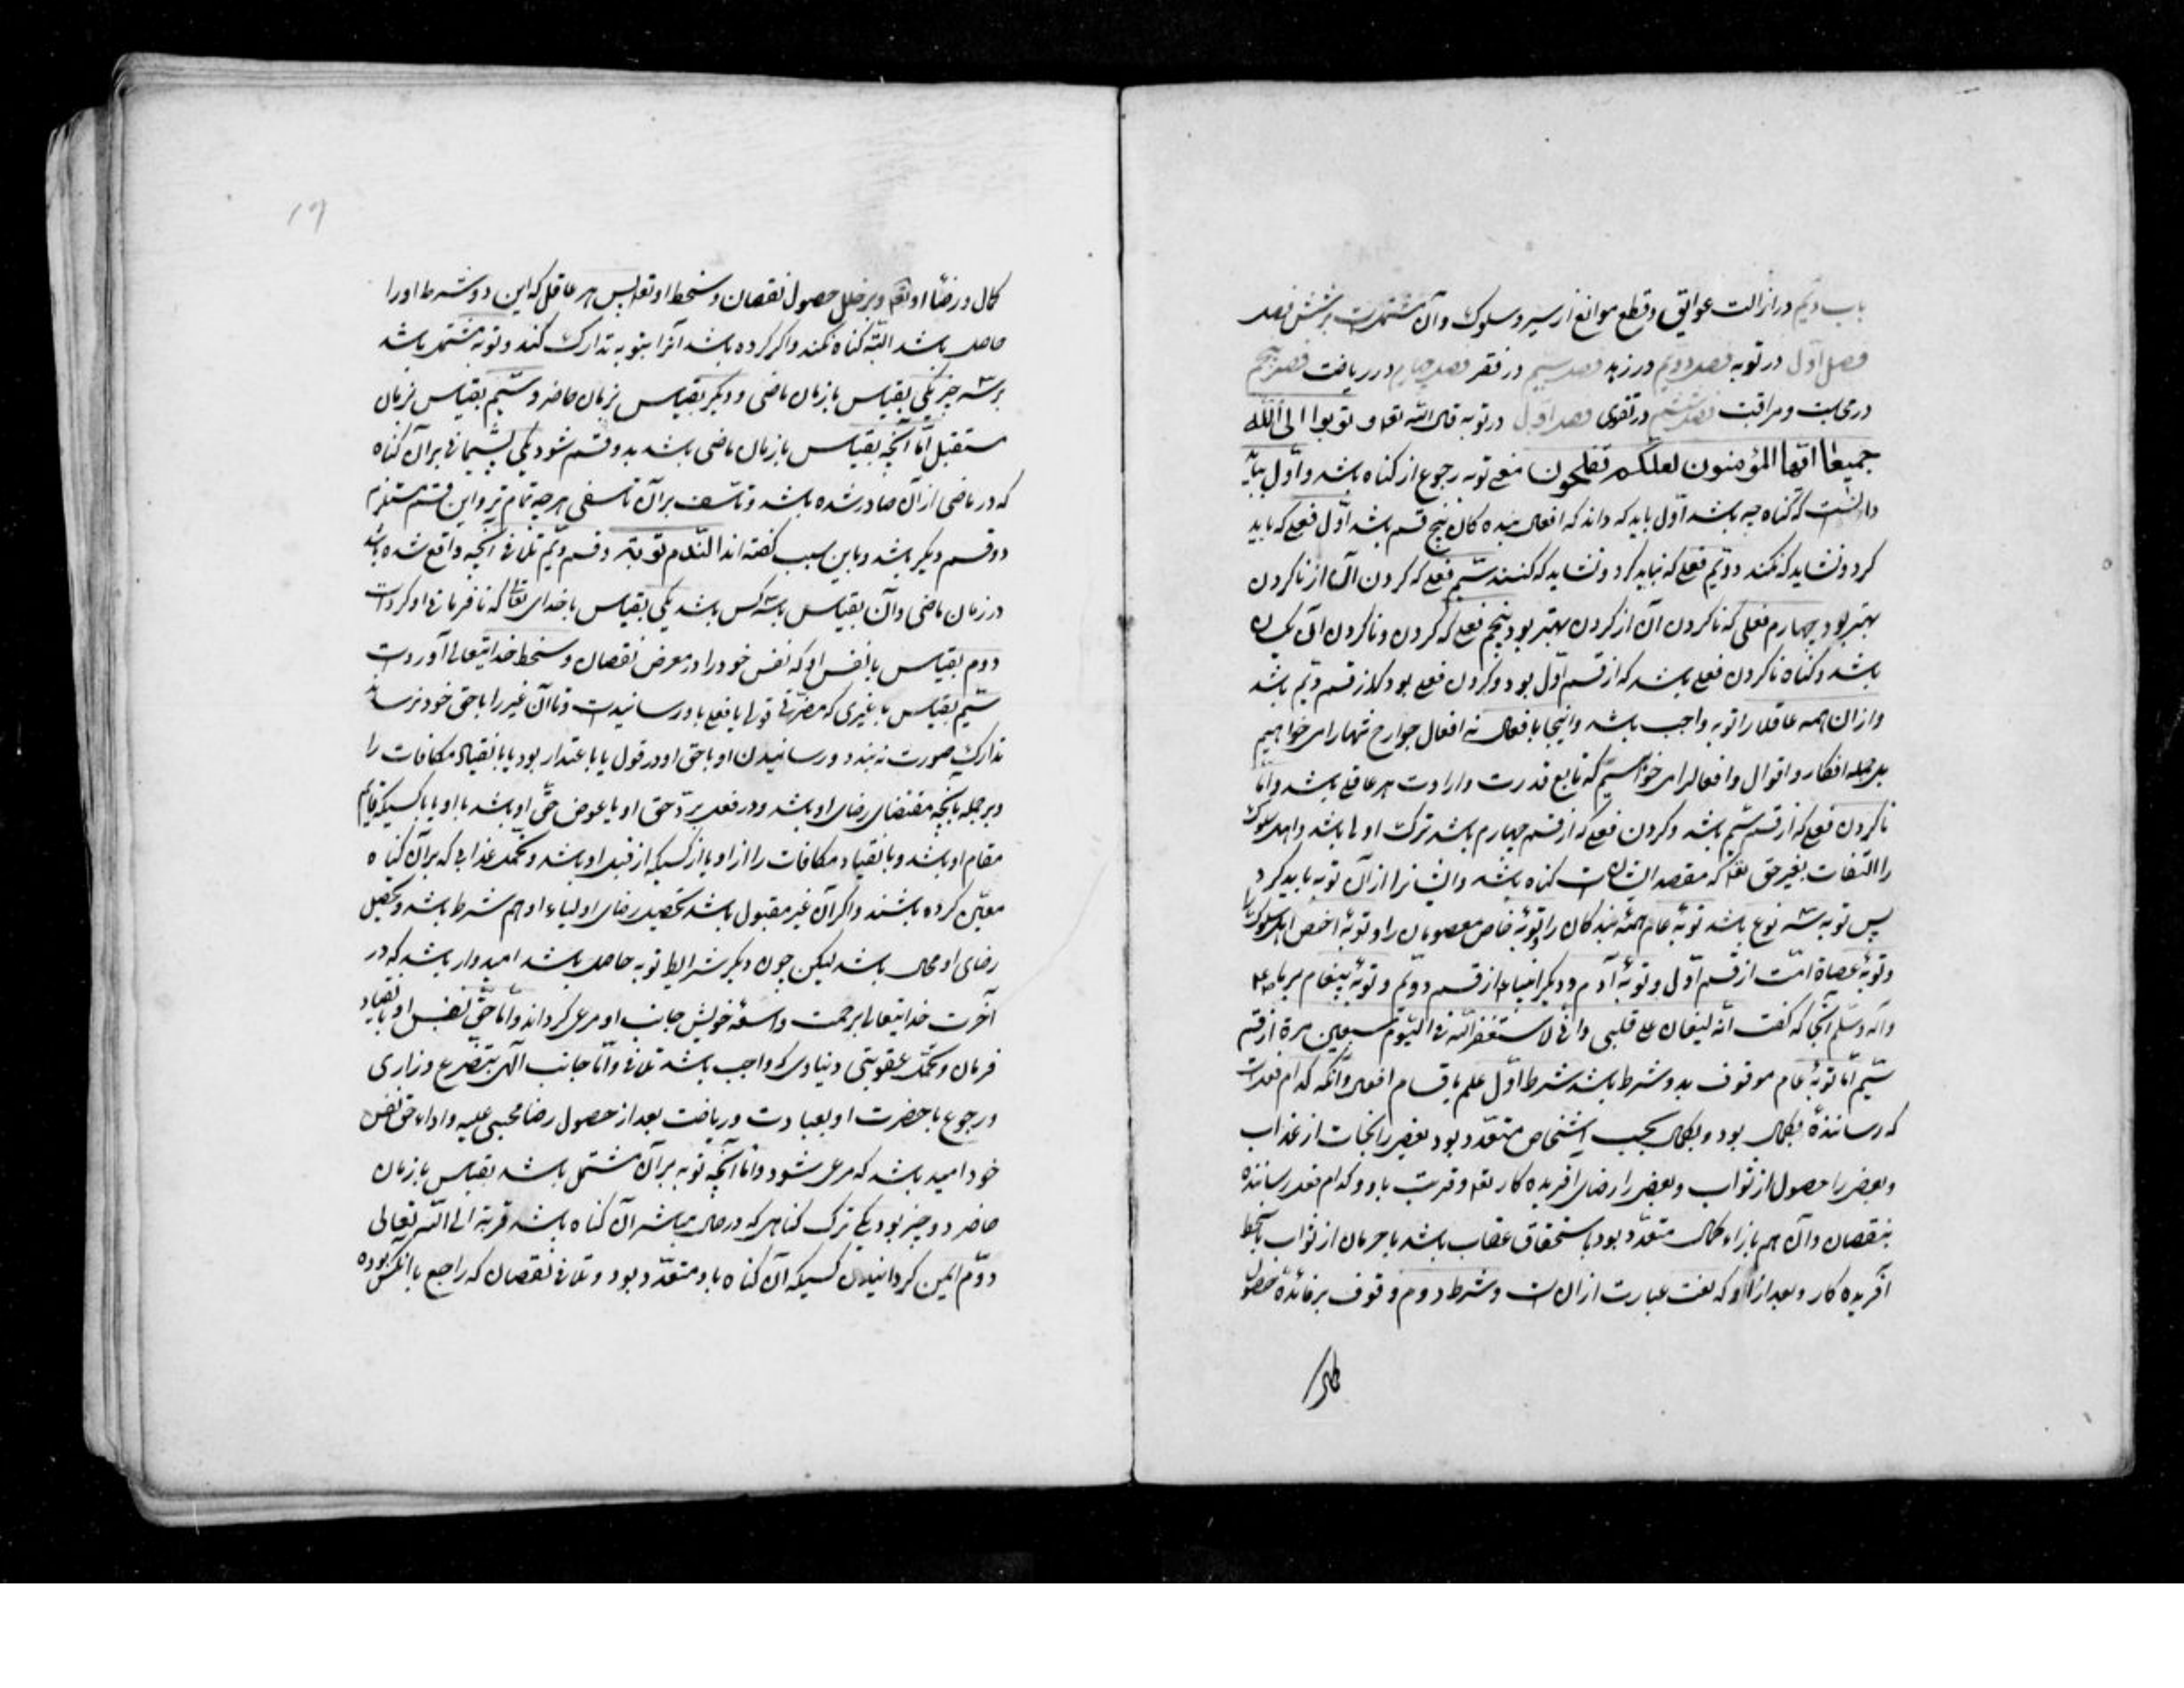 باب دویم در ازالت عوایق و قطع موانع از سیر و سلوک و آن مشتملست بر شش فصل
فصل اول در توبه فصل دویم در زهد فصل سیم در فقر فصل چهارم در ریاضت فصل پنجم
در محاسبت و مراقبت فصل ششم در تقوی فصل اول در توبه قال الله تعالی و توبوا الی الله
جمیعا ایها المؤمنون لعلکم تفلحون معنی توبه رجوع از کناه باشد و اول بباید
دانست که کناه چه باشد اول باید که داند که افعال بنده کان پنج قسم باشد اول فعلی که باید
کرد و نشاید که نکند دویم فعلی که نباید کرد و نشاید که کنند سیم فعلی که کردن آن از ناکردن
بهتر بود چهارم فعلی که ناکردن آن از کردن بهتر بود پنجم فعلی که کردن و ناکردن آن یکسان
باشد و کناه ناکردن فعلی باشد که از قسم اول بود و کردن فعلی بود که از قسم دویم باشد
و از ان همه عاقلان را توبه واجب باشد و اینجا بافعال نه افعال جوارح تنها را می خواهیم
بل جمله افکار و اقوال و افعال را می خواهیم که تابع قدرت و ارادت هر عاقلی باشد و اما
ناکردن فعلی که از قسم سیم باشد و کردن فعلی که از قسم چهارم باشد ترک اولی باشد و اهل سلوک
را التفات بغیر حق تعالی که مقصد ایشان است کناه باشد و ایشانرا از آن توبه باید کرد
پس توبه سه نوع باشد توبهٔ عام همهٔ بندکان را و توبهٔ خاص معصومان را و توبهٔ اخص اهل سلوک را
و توبهٔ عصاة امت از قسم اول و توبهٔ آدم و دیکر انبیاء از قسم دویم و توبهٔ پیغامبر ما صلی الله علیه
و آله و سلم آنجا که کفت انه لیغان علی قلبی و انی لاستغفر الله فی الیوم سبعین مرة از قسم
سیم اما توبهٔ عام موقوف بدو شرط باشد شرط اول علم باقسام افعال و آنکه کدام فعلست
که رسانندهٔ بکمال بود و بکمال بحسب اشخاص متعدد بود بعضی را نجات از عذاب
و بعضی را حصول از ثواب و بعضی را رضای آفریده کار تعالی و قربت باو و کدام فعل رساننده
بنقصان و آن هم بازاء کمال متعدد بود یا استحقاق عقاب باشد یا حرمان از ثواب یا سخط
آفریده کار و بعد از او که لعنت عبارت از ان است و شرط دوم وقوف بر فائدهٔ حصول
کمال
کمال و رضا او تعالی و بر خلل حصول نقصان و سخط او تعالی پس هر عاقل که این دو شرط او را
حاصل باشد البته کناه نکند و اکر کرده باشد آنرا بتوبه تدارک کند و توبه مشتمل باشد
بر سه چیز یکی بقیاس با زمان ماضی و دیکر بقیاس بزمان حاضر و سیم بقیاس بزمان
مستقبل اما آنچه بقیاس با زمان ماضی باشد بدو قسم شود یکی پشیمانی بر آن کناه
که در ماضی از آن صادر شده باشد و تأسف بر آن تأسفی هر چه تمام تر و این قسم مستلزم
دو قسم دیکر باشد و باین سبب کفته اند الندم توبة و قسم دویم تلافی آنچه واقع شده باشد
در زمان ماضی و آن بقیاس با سه کس باشد یکی بقیاس با خدای تعالی که نافرمانی او کرداست
دوم بقیاس با نفس او که نفس خود را در معرض نقصان و سخط خدایتعالی آوردست
سیم بقیاس با غیری که مضرتی قولی یا فعلی باو رسانیدست و تا آن غیر را با حق خود نرساند
تدارک صورت نه بندد و رسانیدن او با حق او در قول یا باعتذار بود یا بانقیاد مکافات را
و بر جمله بآنچه مقتضای رضای او باشد و در فعل برد حق او یا عوض حق او باشد با او یا با کسیکه قایم
مقام او باشد و بانقیاد مکافات را از او یا از کسیکه از قبل او باشد و تحمل عذابی که بر آن کناه
معین کرده باشند و اکر آن غیر مقبول باشد تحصیل رضای اولیاء او هم شرط باشد و تحصیل
رضای او محال باشد لیکن چون دیکر شرایط توبه حاصل باشد امیدوار باشد که در
آخرت خدایتعالی برحمت واسعهٔ خویش جانب او مرعی کرداند و اما حق نفس او بانقیاد
فرمان و تحمل عقوبتی دنیاوی که واجب باشد تلافی و اما جانب الهی بتضرع و زاری
و رجوع با حضرت او بعبادت و ریاضت بعد از حصول رضا مجنی علیه و اداء حق نفس
خود امید باشد که مرعی شود و اما آنچه توبه بر آن مشتمل باشد بقیاس با زمان
حاضر دو چیز بود یکی ترک کناهی که در حال مباشر آن کناه باشد قربة الی الله تعالی
دوم ایمن کردانیدن کسیکه آن کناه باو متعدد بود و تلافی نقصان که راجع با آنکس بوده